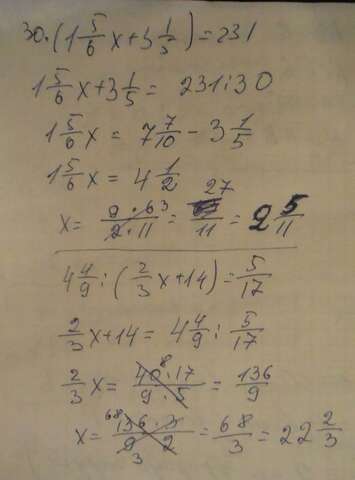 30·(1 5/6 x+3 1/5)=231
1 5/6 x+3 1/5= 231:30
1 5/6 x = 7 7/10 - 3 1/5
1 5/6 x = 4 1/2
x= 9·6 3/2·11 = 27/11 = 2 5/11
4 4/9 : (2/3 x+14)=5/17
2/3 x+14= 4 4/9 : 5/17
2/3 x= 40 8·17/9·5 = 136/9
x= 68 136·3/9 3 2 = 68/3 = 22 2/3